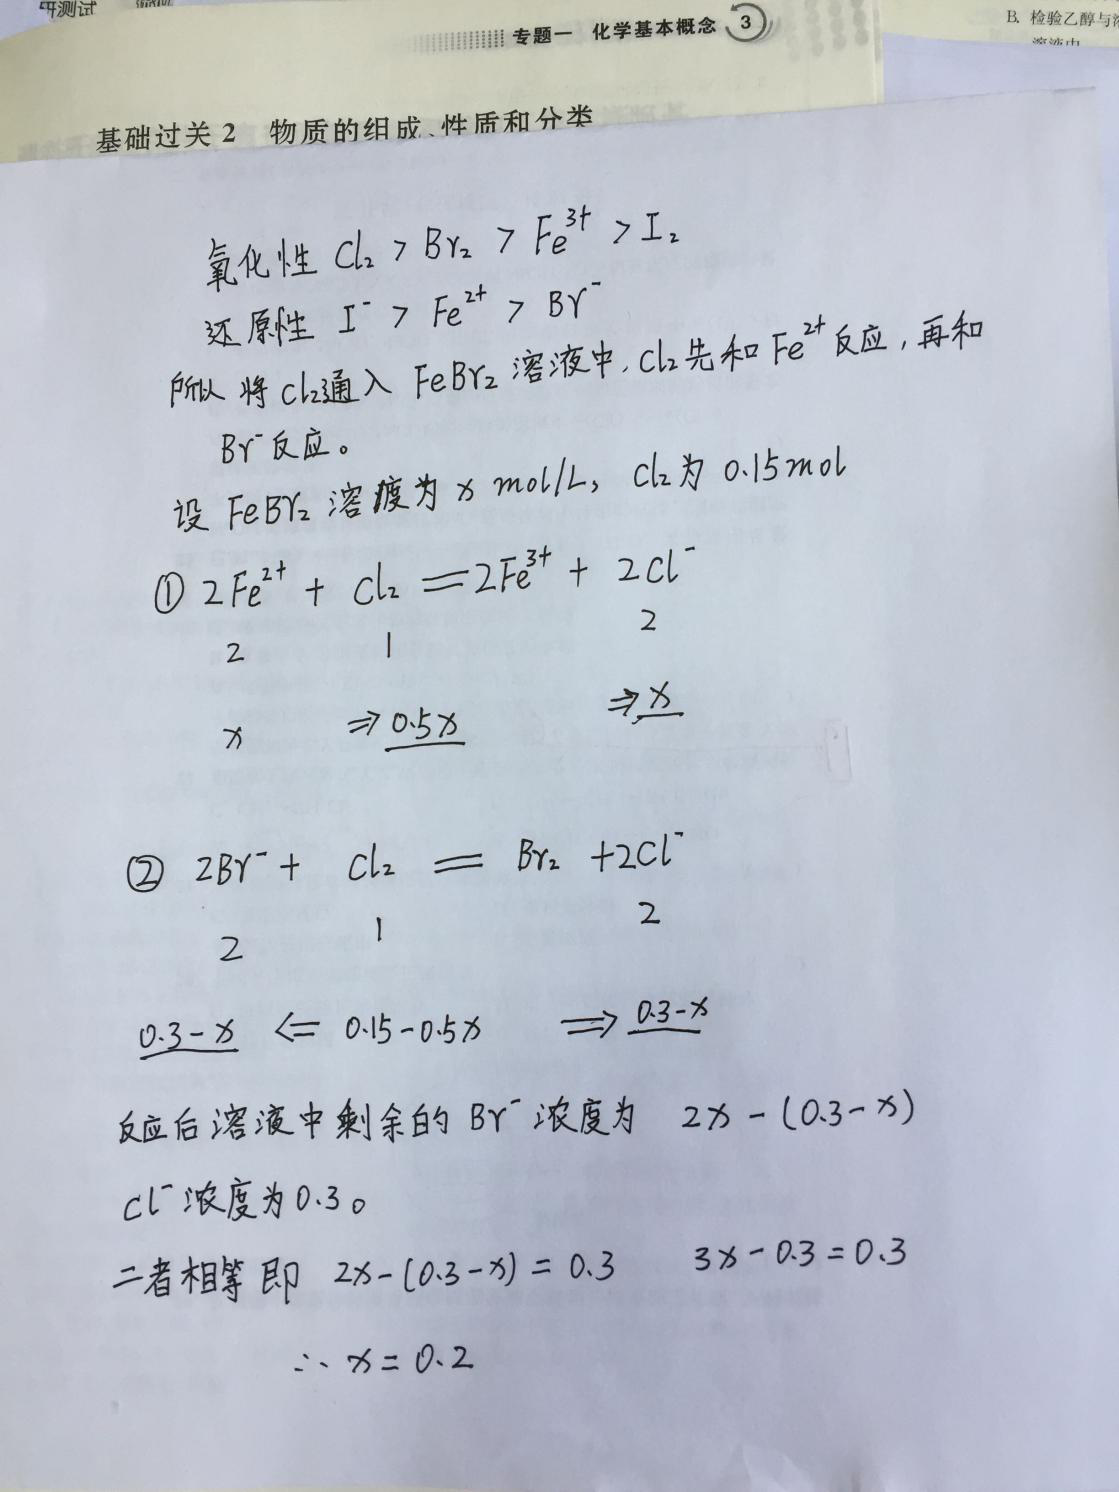 研测试
专题一 化学基本概念 3
B. 检验乙醇与
溶液中
基础过关 2 物质的组成、性质和分类
氧化性 Cl₂ > Br₂ > Fe³⁺ > I₂
还原性 I⁻ > Fe²⁺ > Br⁻
所以将Cl₂通入 FeBr₂ 溶液中,Cl₂先和Fe²⁺反应,再和
Br⁻反应。
设 FeBr₂ 溶度为 x mol/L, Cl₂为 0.15mol
① 2Fe²⁺ + Cl₂ = 2Fe³⁺ + 2Cl⁻
2 1 2
x ⇒ 0.5x ⇒ x
② 2Br⁻ + Cl₂ = Br₂ + 2Cl⁻
2 1 2
0.3-x ⇐ 0.15-0.5x ⇒ 0.3-x
反应后溶液中剩余的 Br⁻ 浓度为 2x-(0.3-x)
Cl⁻ 浓度为0.3。
二者相等即 2x-(0.3-x) = 0.3 3x-0.3=0.3
∴ x = 0.2